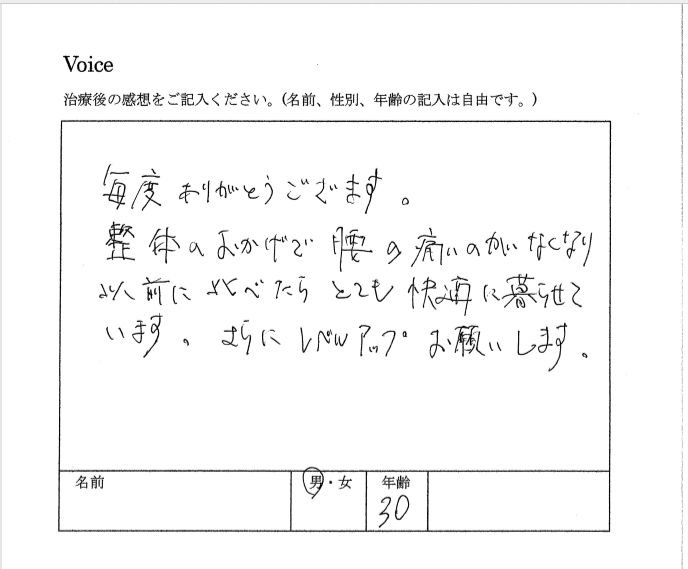 Voice
治療後の感想をご記入ください。(名前、性別、年齢の記入は自由です。)
毎度ありがとうございます。
整体のおかげで腰の痛いのがいなくなり
以前に比べたらとても快適に暮らせて
います。さらにレベルアップお願いします。
名前 男・女 年齢
30